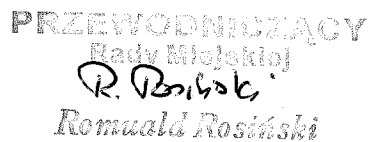 PRZEWODNICZĄCY
Rady Miejskiej
R. Rosiński
Romuald Rosiński